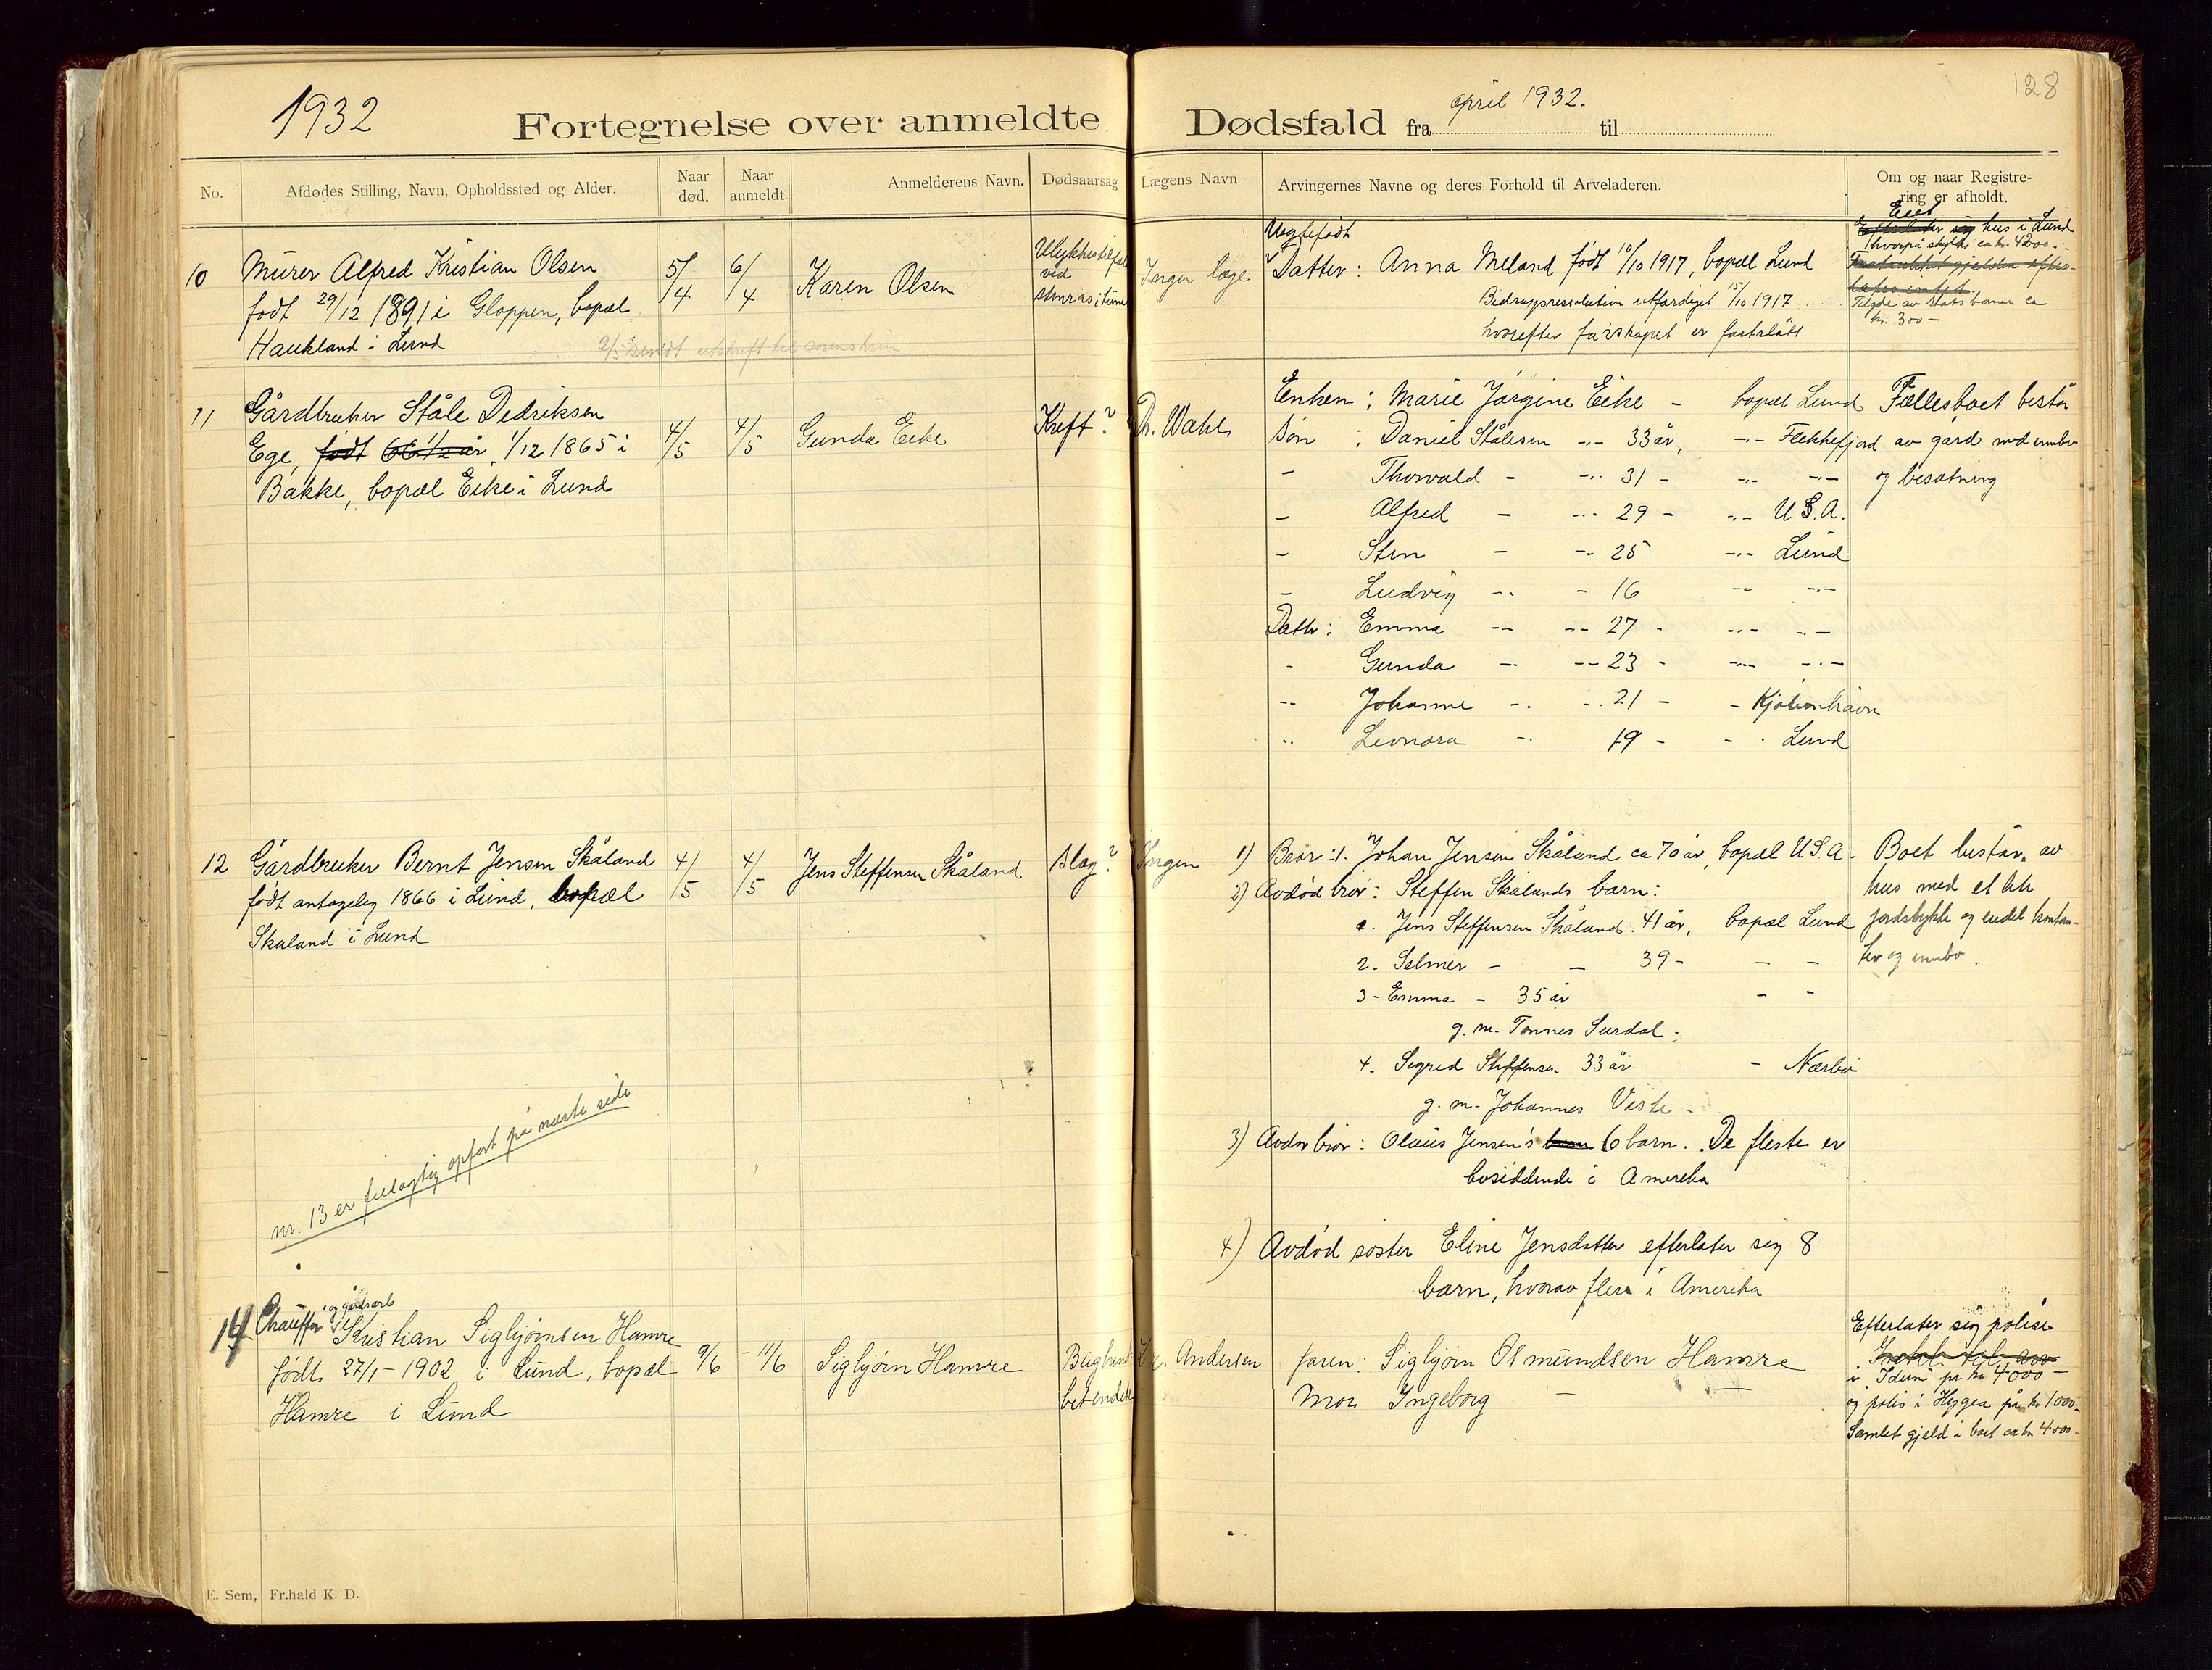 1932
april 1932.
128
Fortegnelse over anmeldte Dødsfald fra til
No.
Afdødes Stilling, Navn, Opholdssted og Alder.
Naar død.
Naar anmeldt
Anmelderens Navn.
Dødsaarsag
Lægens Navn
Arvingernes Navne og deres Forhold til Arveladeren.
Om og naar Registrering er afholdt.
10
Murer Alfred Kristian Olsen
født 29/12 1891 i Gloppen, bopæl
Haukland i Lund
5/4
6/4
Karen Olsen
Ulykkestilfæl
ved
stenras i tunn
Ingen læge
Uegtefødt
Datter: Anna Meland født 10/10 1917, bopæl Lund
Bidragsresolution utfærdiget 15/10 1917
hvorefter farskapet er fastslått
Eiet
hus i Lund
hvorpå skyldes ca kr. 4200.-
Tilgode av Statsbanen ca
kr. 300 -
2/5 sendt utskrift til sorenskriv
11
Gårdbruker Ståle Dedriksen
Ege, født 66 1/2 år, 1/12 1865 i
Bakke, bopæl Eike i Lund
4/5
4/5
Gunda Eike
Kreft?
Dr. Wahl
Enken: Marie Jørgine Eike - bopæl Lund
Søn: Daniel Stålesen -"- 33 år, -"- Flekkefjord
- Thorvald - -"- 31 - -"- -"-
- Alfred - -"- 29 - -"- U.S.A.
- Sten - -"- 25 -"- Lund
- Ludvig -"- - 16 -"- -"-
Dattr: Emma -"- -"- 27 - -"- -"-
- Gunda -"- -"- 23 - -"- -"-
-"- Johanne -"- -"- 21 - - Kjøbenhavn
-"- Leonora -"- 19 - - Lund
Fællesboet består
av gård med innbo
og besætning
12
Gårdbruker Bernt Jensen Skåland
født antagelig 1866 i Lund, bopæl
Skåland i Lund
4/5
4/5
Jens Steffensen Skåland
Slag?
Ingen
1) Bror: 1. Johan Jensen Skåland ca 70 år, bopæl U.S.A.
2) Avdød bror: Steffen Skålands barn:
1. Jens Steffensen Skåland. 41 år, bopæl Lund
2. Selmer - - 39 - - -
3 - Emma - 35 år - -
g. m. Tønnes Surdal.
4. Sigred Steffensen 33 år - Nærbø
g. m. Johannes Viste -
3) Avdøe bror: Olaus Jensen's barn 6 barn. De fleste er
bosiddende i Amerika
4) Avdød søster Eline Jensdatter efterlater sig 8
barn, hvorav flere i Amerika
Boet består av
hus med et lite
jordstykke og endel kontan-
ter og innbo.
nr. 13 er feilagtig opført på næste side
14
Chauffør og gårdsarb
Kristian Sigbjørnsen Hamre
født 27/1 - 1902 i Lund, bopæl
Hamre i Lund
9/6
11/6
Sigbjørn Hamre
Bughind
betendelse
Dr. Andersen
faren: Sigbjørn Osmundsen Hamre
Mor Ingeborg - -
Efterlater sig polise
i "Idun" på kr 4000 -
og polis i Hygea på kr 1000 -
Samlet gjeld i boet ca kr 4000 -
E. Sem, Fr.hald K. D.